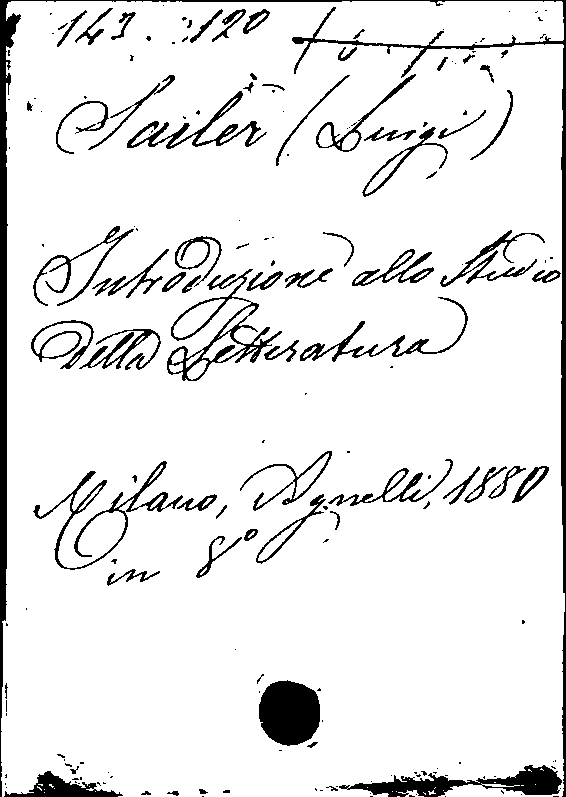 143. 120
Sailer (Luigi)
Introduzione allo Studio
della Letteratura
Milano, Agnelli, 1880
in 8°